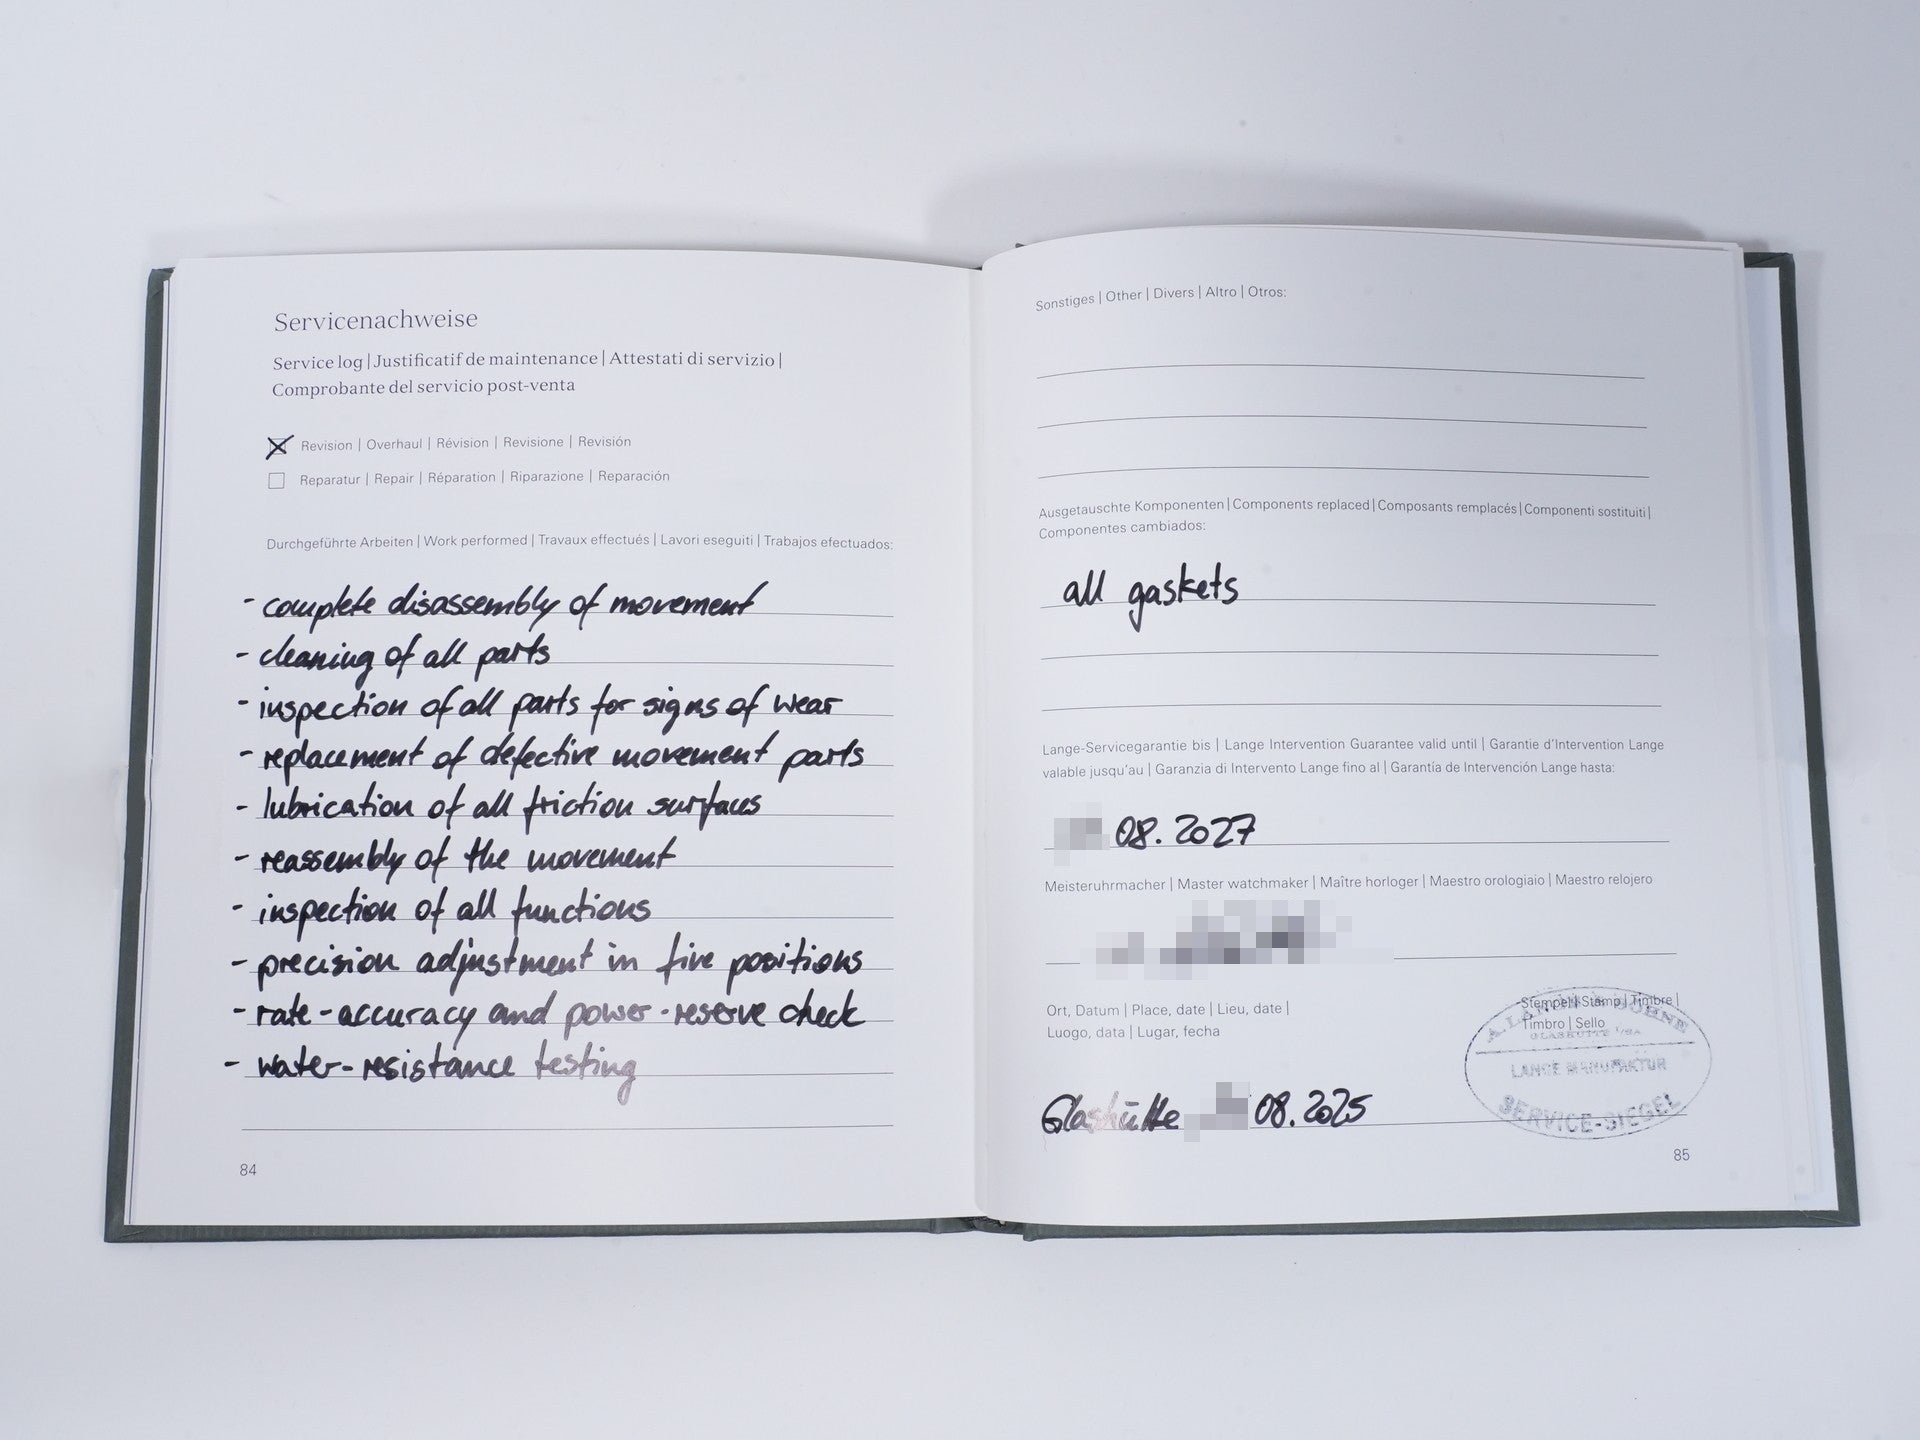 Servicenachweise
Service log | Justificatif de maintenance | Attestati di servizio |
Comprobante del servicio post-venta
Revision | Overhaul | Révision | Revisione | Revisión
Reparatur | Repair | Réparation | Riparazione | Reparación
Durchgeführte Arbeiten | Work performed | Travaux effectués | Lavori eseguiti | Trabajos efectuados:
- complete disassembly of movement
- cleaning of all parts
- inspection of all parts for signs of wear
- replacement of defective movement parts
- lubrication of all friction surfaces
- reassembly of the movement
- inspection of all functions
- precision adjustment in five positions
- rate-accuracy and power-reserve check
- water-resistance testing
84
Sonstiges | Other | Divers | Altro | Otros:
Ausgetauschte Komponenten | Components replaced | Composants remplacés | Componenti sostituiti |
Componentes cambiados:
all gaskets
Lange-Servicegarantie bis | Lange Intervention Guarantee valid until | Garantie d'Intervention Lange
valable jusqu'au | Garanzia di Intervento Lange fino al | Garantía de Intervención Lange hasta:
08. 2027
Meisteruhrmacher | Master watchmaker | Maître horloger | Maestro orologiaio | Maestro relojero
Ort, Datum | Place, date | Lieu, date |
Luogo, data | Lugar, fecha
Stempel | Stamp | Timbre |
Timbro | Sello
A. LANGE & SÖHNE
GLASHÜTTE I/SA
LANGE MANUFAKTUR
SERVICE-SIEGEL
Glashütte 08. 2025
85